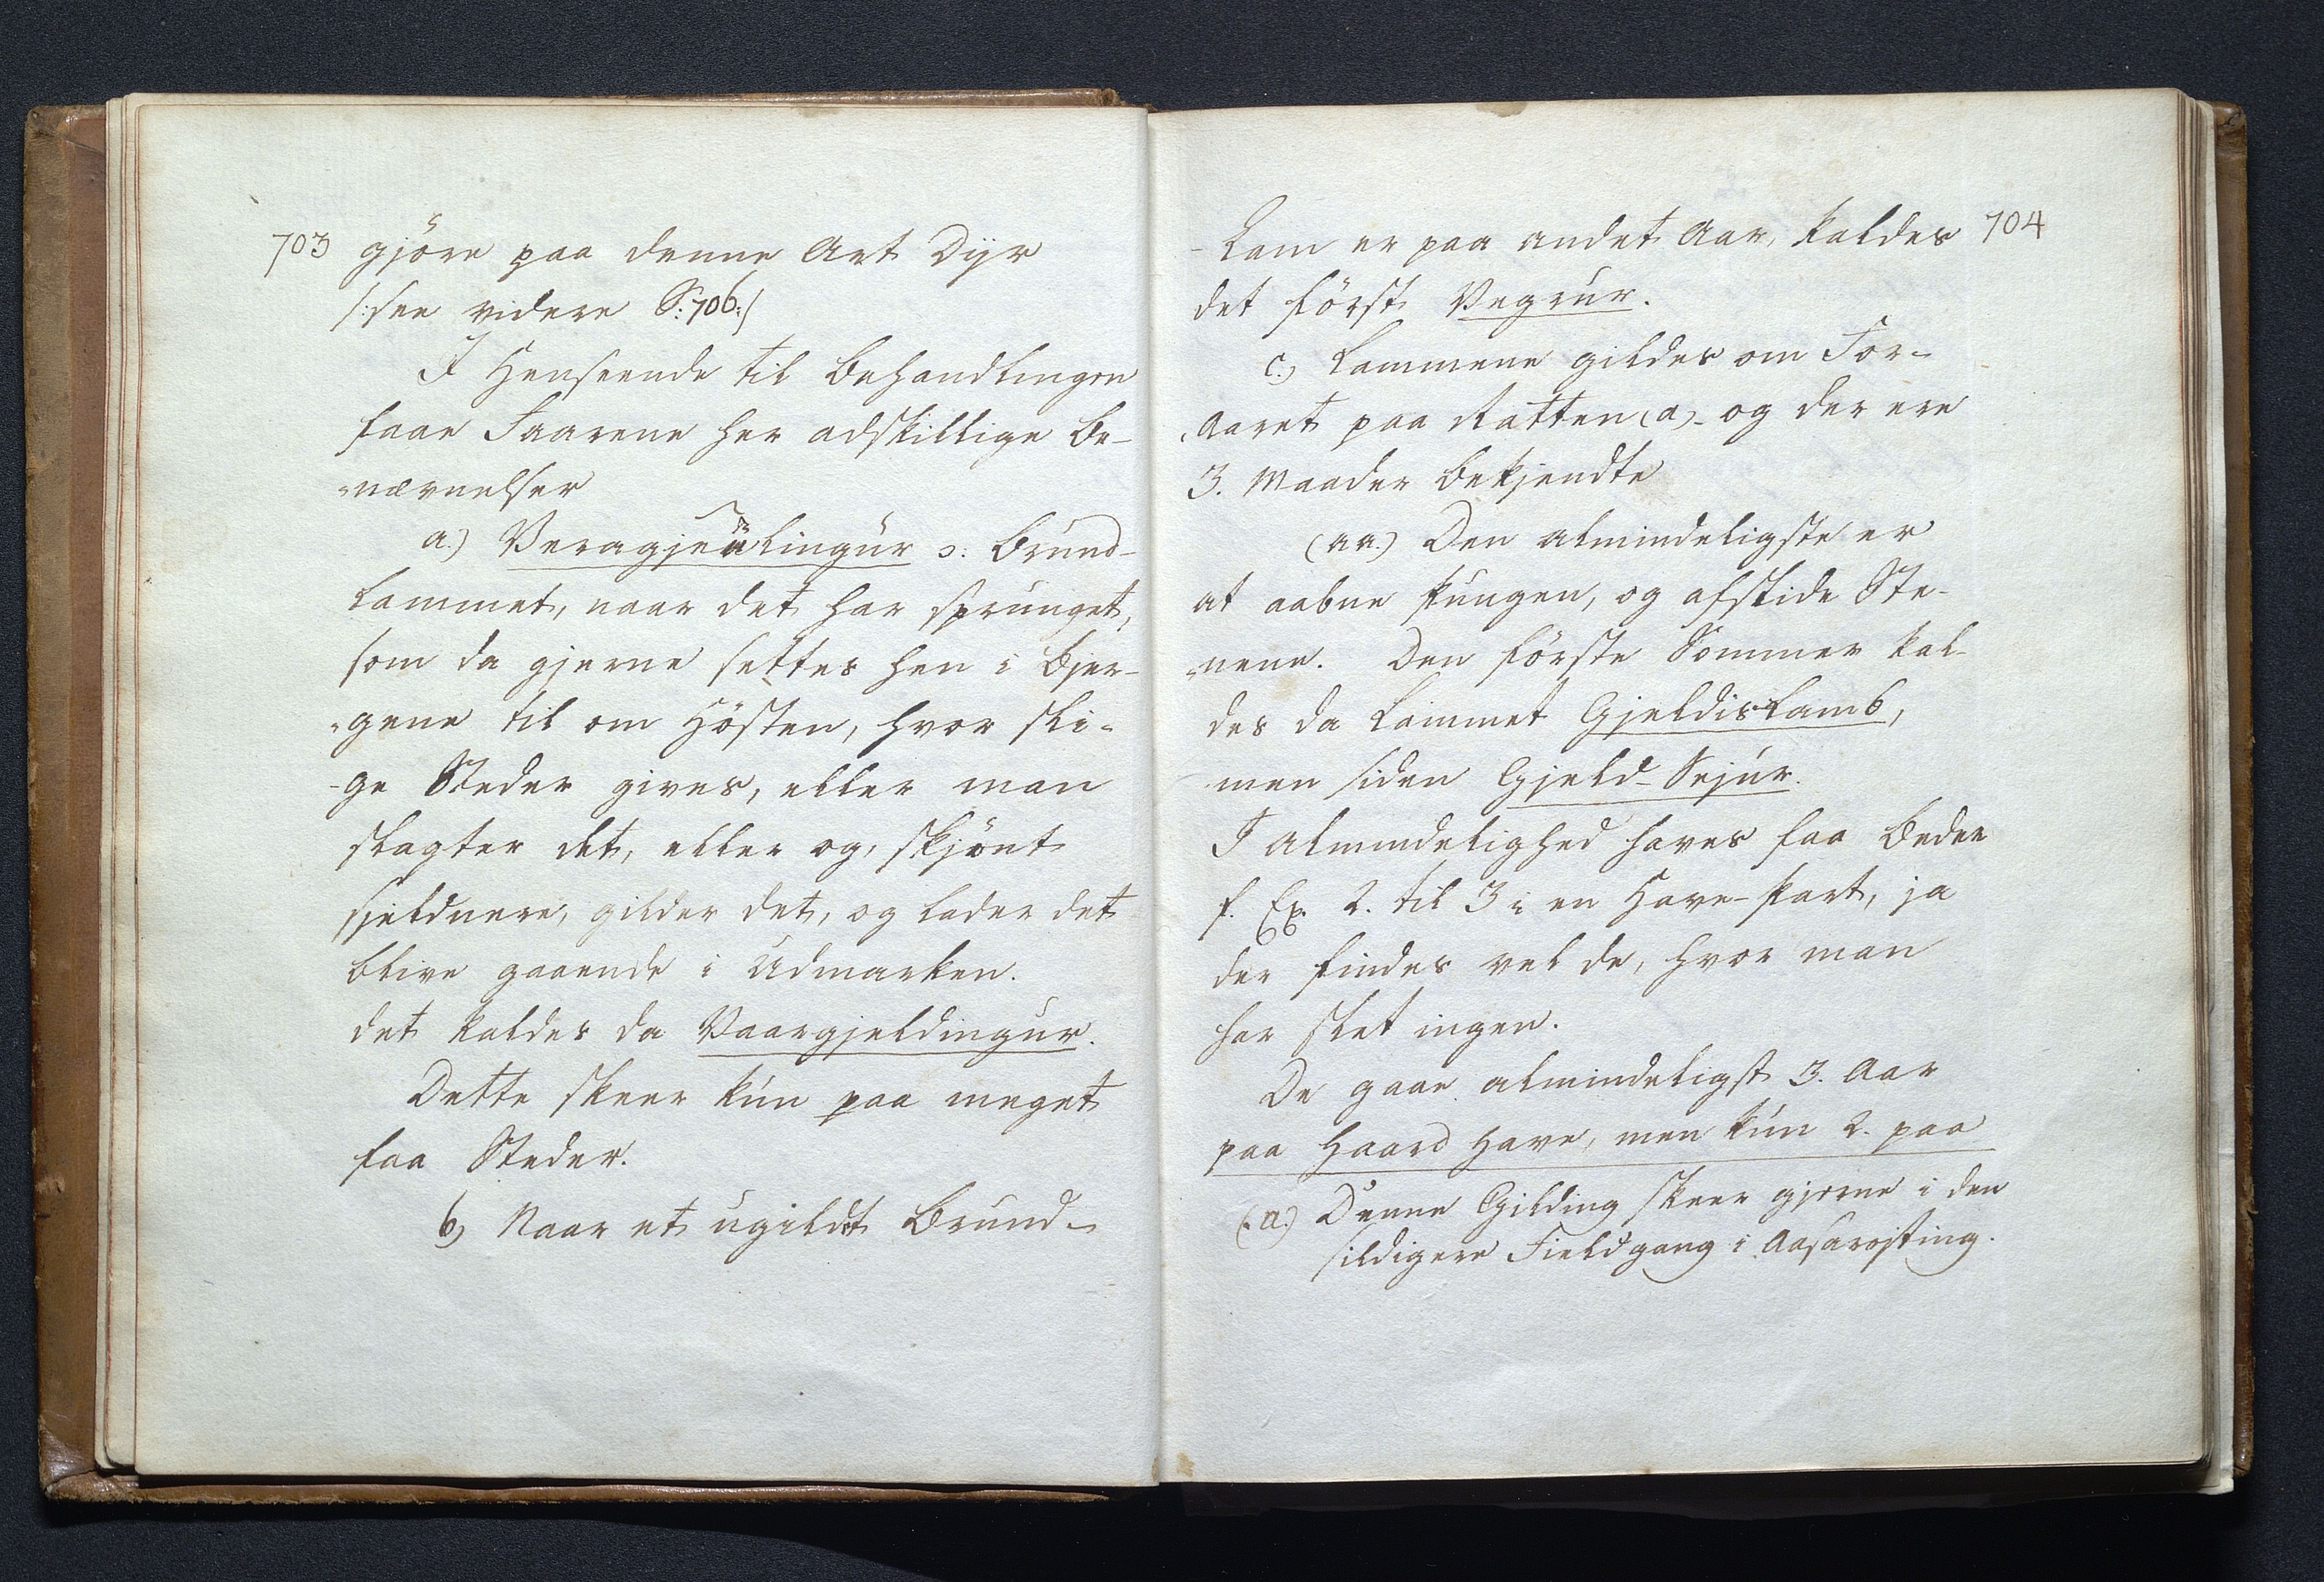 703 gjöre paa denne Art Dyr
/:see videre S:706:/
I Henseende til Behandlingen
faae Faarene her adskillige Be-
-nævnelser
a.) Veragjeälingur ɔ: Brund-
Lammet, naar det har sprunget,
som da gjerne settes hen i Bjer-
-gene til om Hösten, hvor sli-
-ge Steder gives, eller man
slagter det, eller og, skjönt
sjeldnere, gilder det, og lader det
blive gaaende i Udmarken.
det kaldes da Vaargjeldingur.
Dette skeer kun paa meget
faa Steder.
b) Naar et ugildet Brund-
-Lam er paa andet Aar, kaldes 704
det först Vegrur.
c.) Lammene gildes om For-
Aaret paa Ratten (a)- og der ere
3. Maader bekjendte
(aa.) Den almindeligste er
at aabne Pungen, og afskide Ste-
-nene. Den förste Sommer kal-
des da Lammet Gjeldislamb,
men siden Gjeld-Sejur.
I Almindelighed haves faa Beder
f. Ex. 2. til 3 i en Have-Part, ja
der findes vel de, hvor man
har slet ingen.
De gaae almindeligst 3. Aar
paa Haard Have, men kun 2. paa
(a.) Denne Gilding skeer gjerne i den
sildigere Fieldgang i Aasarojsting.